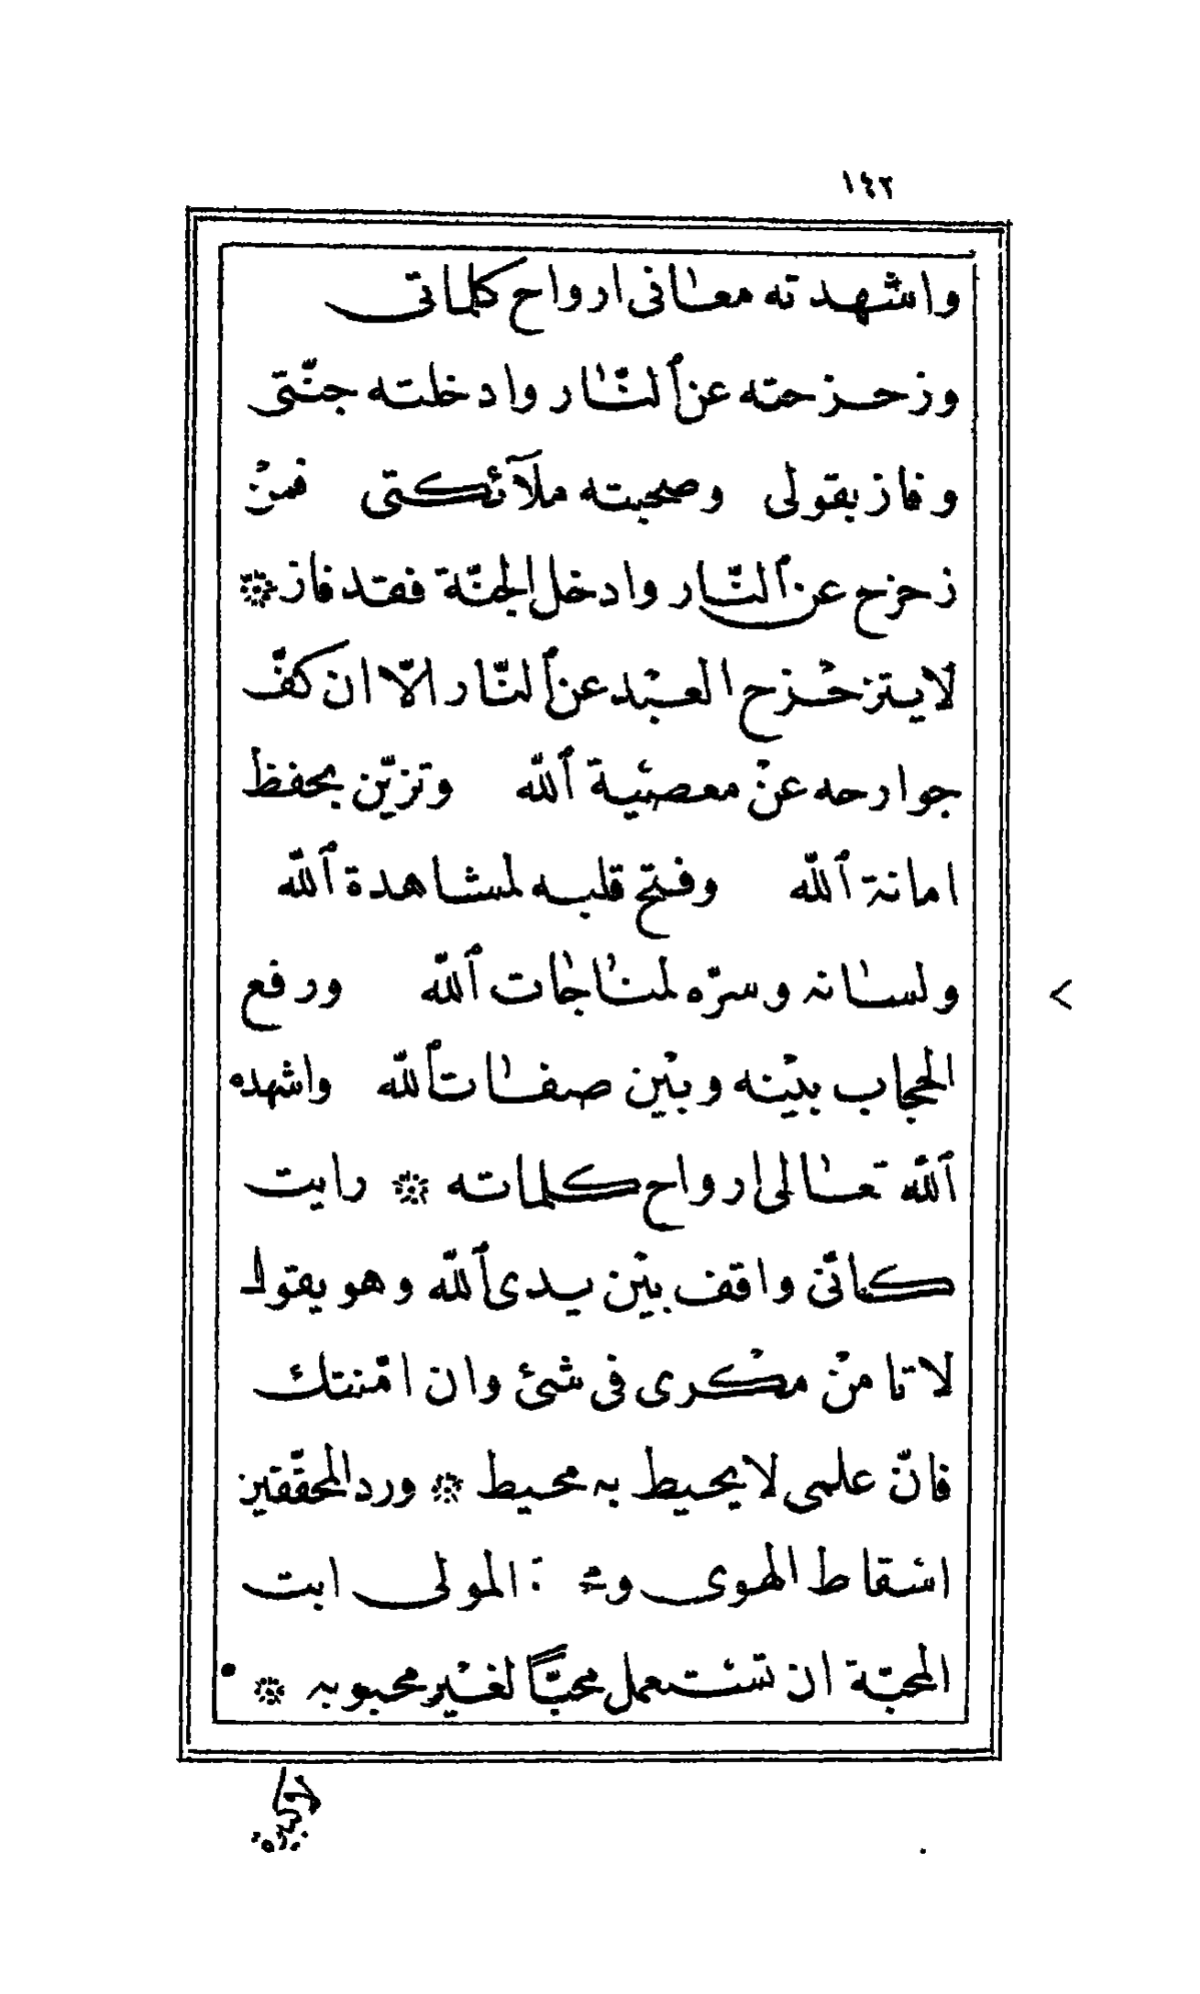 ١٤٢
واشهدته معانى ارواح كلماتى
وزحزحته عن ٱلنّار وادخلته جنّتى
وفاز بقولى وصحبته ملآئكتى فمنْ
زحزح عن ٱلنّار وادخل الجنّة فقد فاز ۞
لايتزحْزح العبْد عن ٱلنّار الّا ان كفّ
جوارحه عنْ معصيْة ٱللّه وتزيّن بحفظ
امانة ٱللّه وفتح قلبه لمشاهدة ٱللّه
ولسانه وسرّه لمناجات ٱللّه ورفع
الحجاب بيْنه وبيْن صفات ٱللّه واشهده
ٱللّه تعالى ارواح كلماته ۞ رايت
كانّى واقف بيْن يدى ٱللّه وهو يقول
لا تامنْ مكْرى فى شئ وان امّنتك
فانّ علمى لا يحيط به محيط ۞ ورد المحقّقين
اسْقاط الهوى المولى ابت
المحبّة ان تسْتعمل محبّاً لغيْر محبوبه ۞